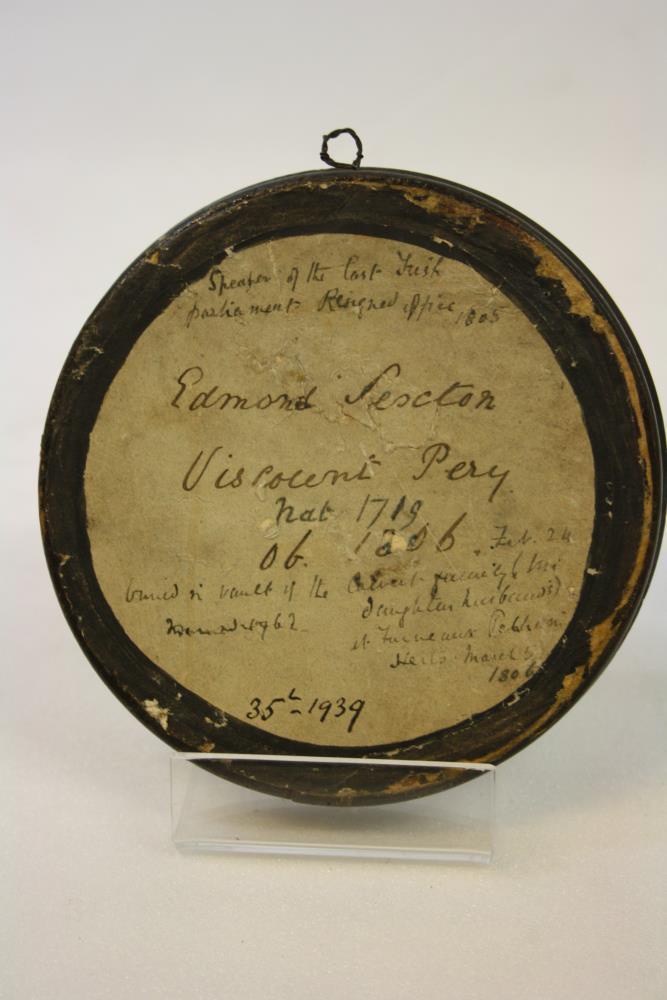 Speaker of the last Irish
parliament Resigned office 1805
Edmond Sexton
Viscount Pery
Nat 1719
Ob. 1806. Feb. 24
buried in vault of the Calvert family (his
daughters husband's)
at Furneaux Pelham
Herts March 5
1806
35L-1939